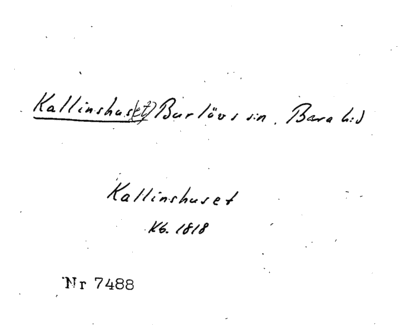 Kallinshus(et) Burlövs sn. Bara hd
Kallinshuset
Kb. 1818
Nr 7488